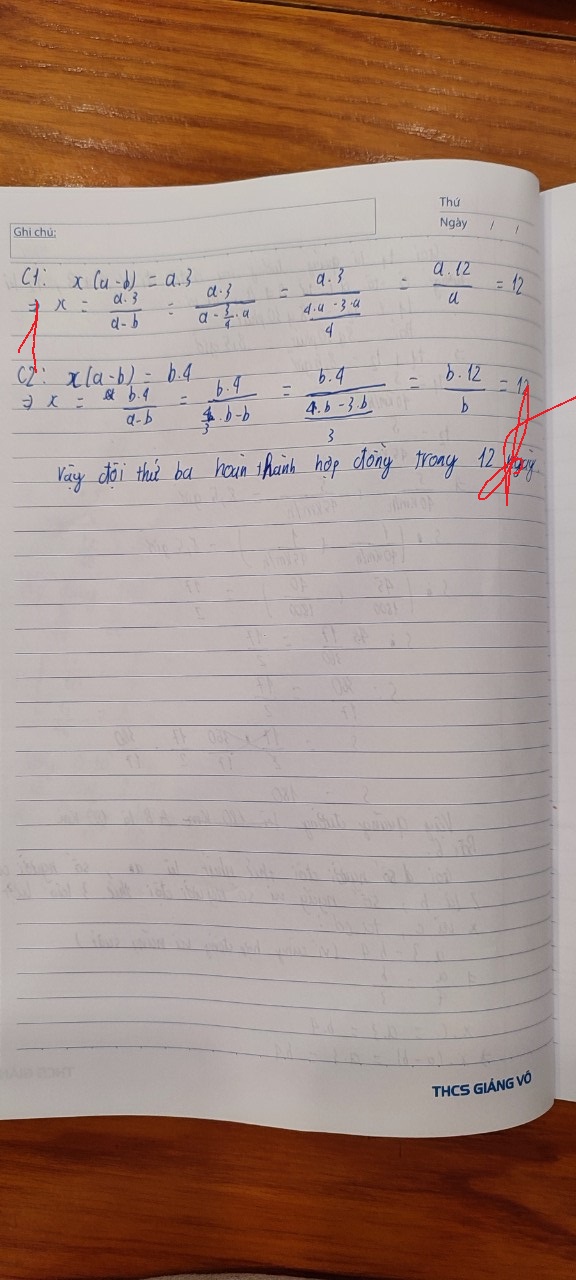 Thứ
Ngày / /
Ghi chú:
C1: x(a-b) = a.3
⇒ x = \frac{a.3}{a-b} = \frac{a.3}{a-\frac{3}{4}.a} = \frac{a.3}{\frac{4.a-3.a}{4}} = \frac{a.12}{a} = 12
C2: x(a-b) = b.4
⇒ x = \frac{b.4}{a-b} = \frac{b.4}{\frac{4}{3}.b-b} = \frac{b.4}{\frac{4.b-3.b}{3}} = \frac{b.12}{b} = 12
Vậy đội thứ ba hoàn thành hợp đồng trong 12 ngày.
THCS GIẢNG VÕ